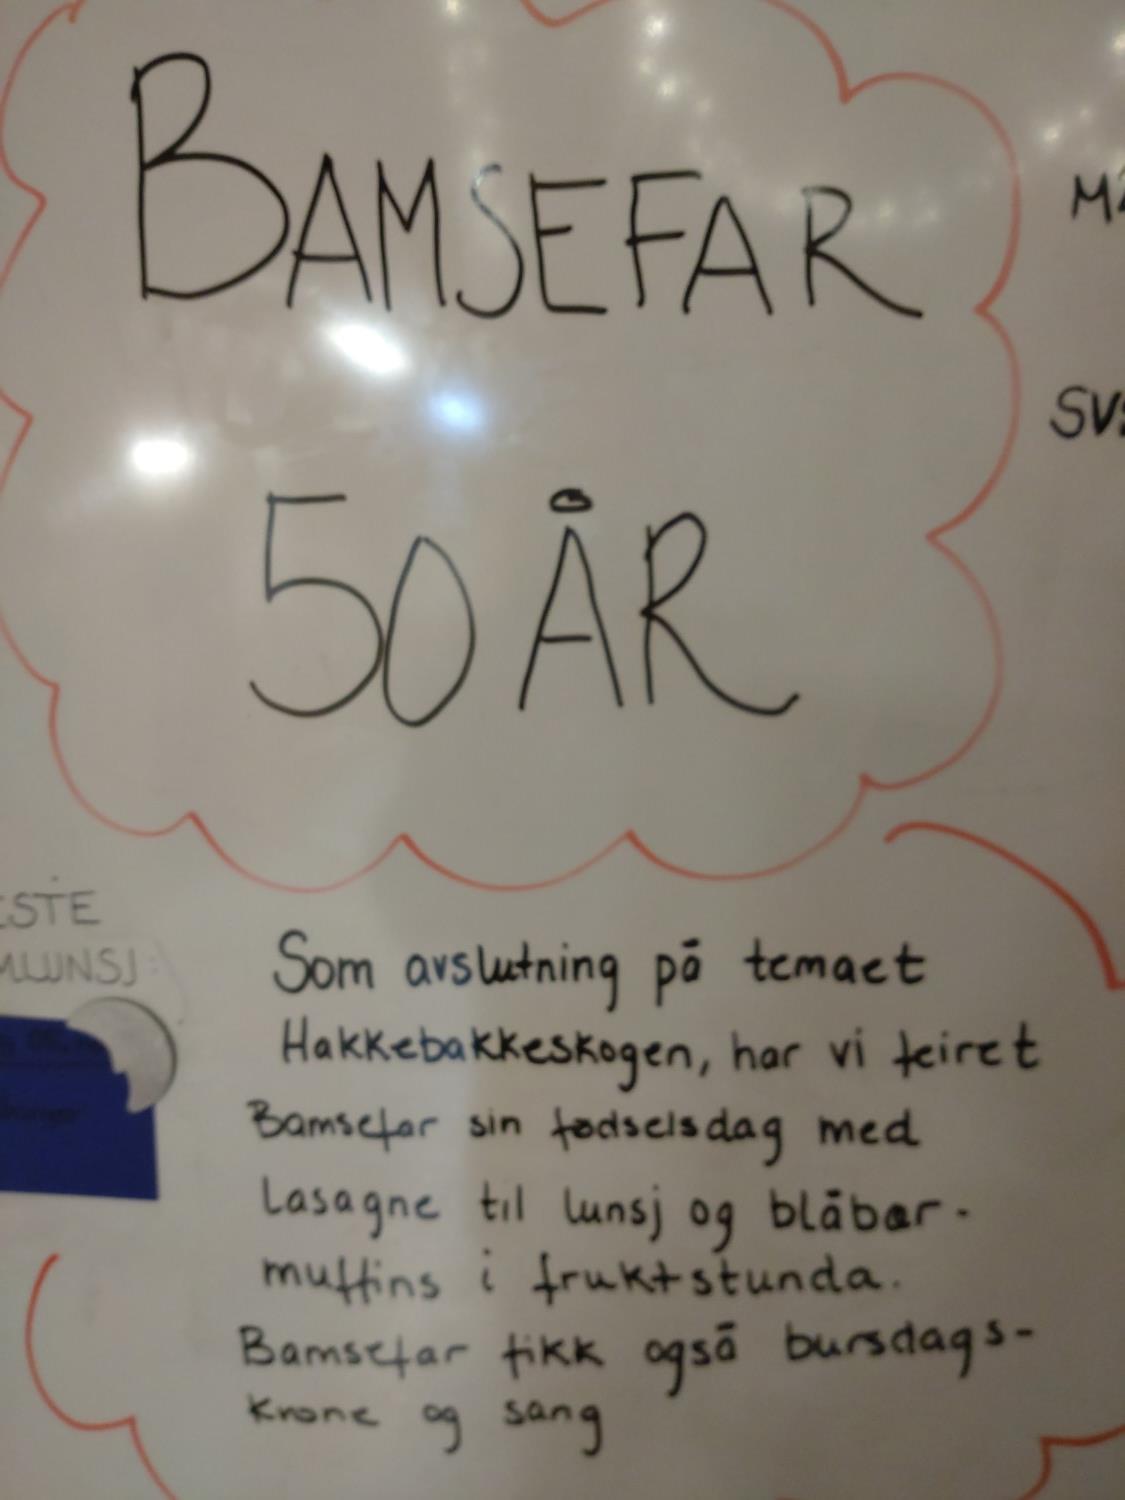 BAMSEFAR
50 ÅR
Som avslutning på temaet
Hakkebakkeskogen, har vi feiret
Bamsefar sin fødselsdag med
Lasagne til lunsj og blåbær-
muffins i fruktstunda.
Bamsefar fikk også bursdags-
krone og sang